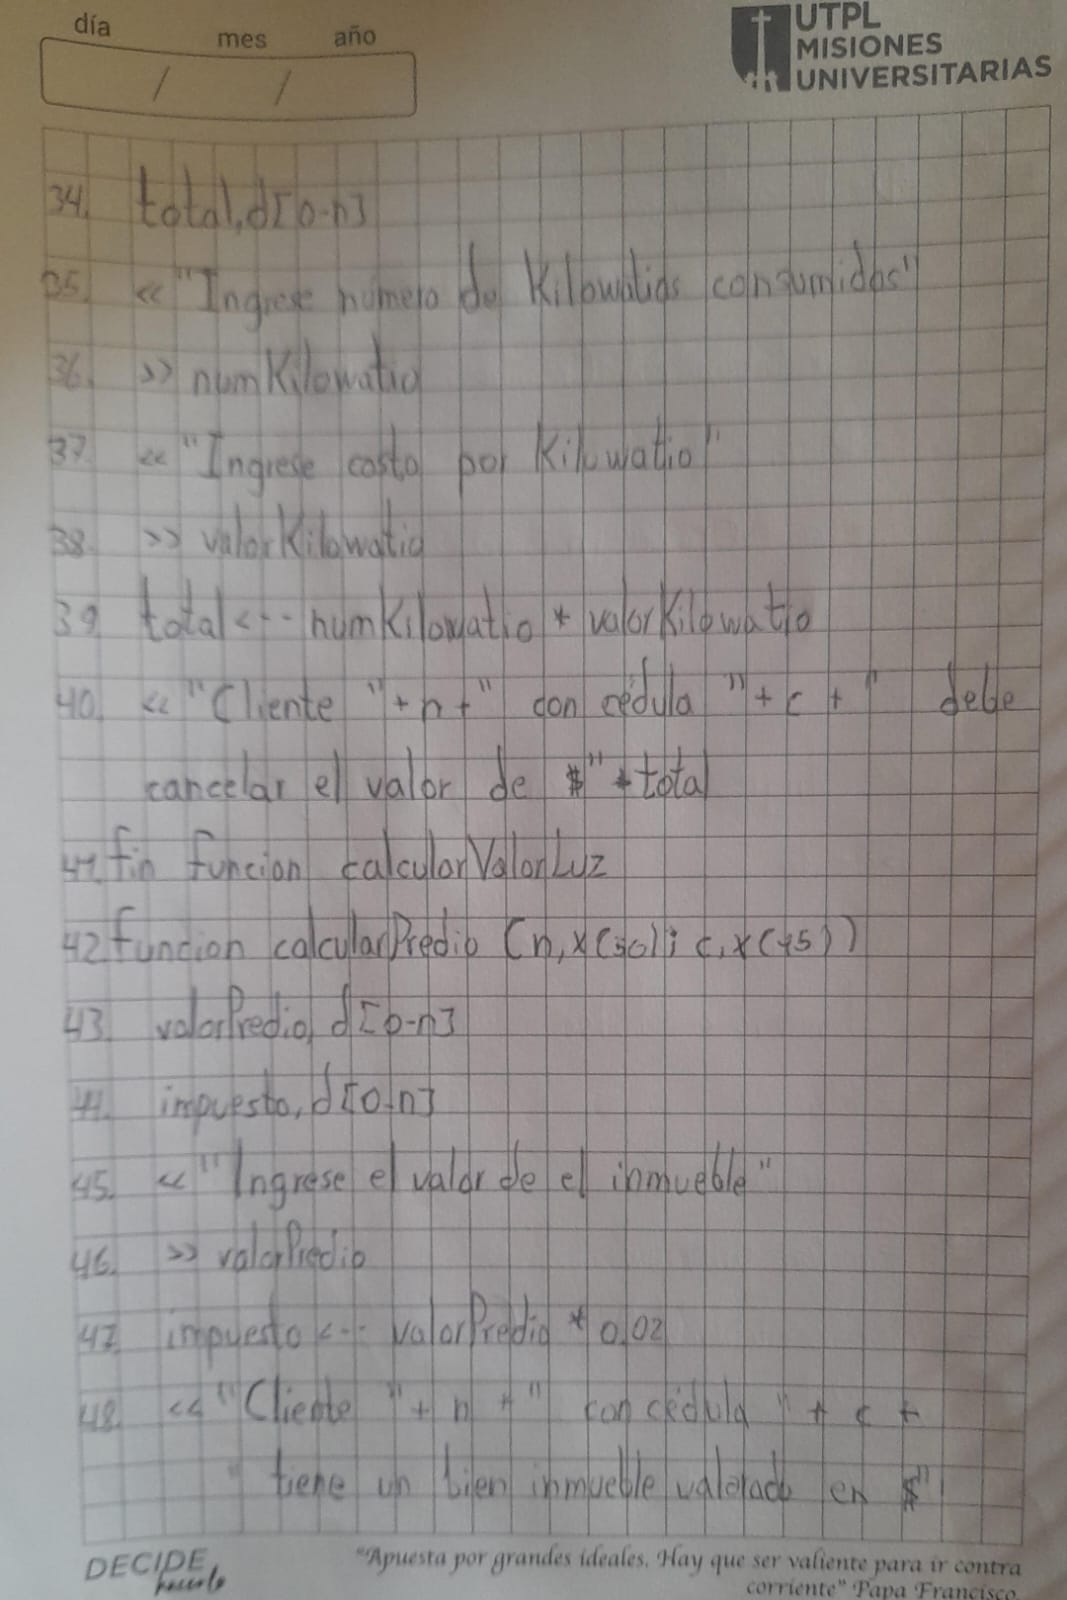 día mes año
/ /
UTPL
MISIONES
UNIVERSITARIAS
34. total, d[0-n]
35. << "Ingrese número de Kilowatios consumidos"
36. >> numKilowatio
37. << "Ingrese costo por Kilowatio"
38. >> valorKilowatio
39 total <-- numKilowatio * valorKilowatio
40. << "Cliente "+n+" con cédula "+ c + " debe
cancelar el valor de $" + total
41. fin funcion calcularValorLuz
42 funcion calcularPredio (n, x(30); c, x(15))
43. valorPredio, d[0-n]
44. impuesto, d[0-n]
45. << "Ingrese el valor de el inmueble"
46. >> valorPredio
47. impuesto <-- valorPredio * 0.02
48. << "Cliente "+ n +" con cédula "+ c +
" tiene un bien inmueble valorado en $"
DECIDE
hacerlo
"Apuesta por grandes ideales. Hay que ser valiente para ir contra
corriente" Papa Francisco.